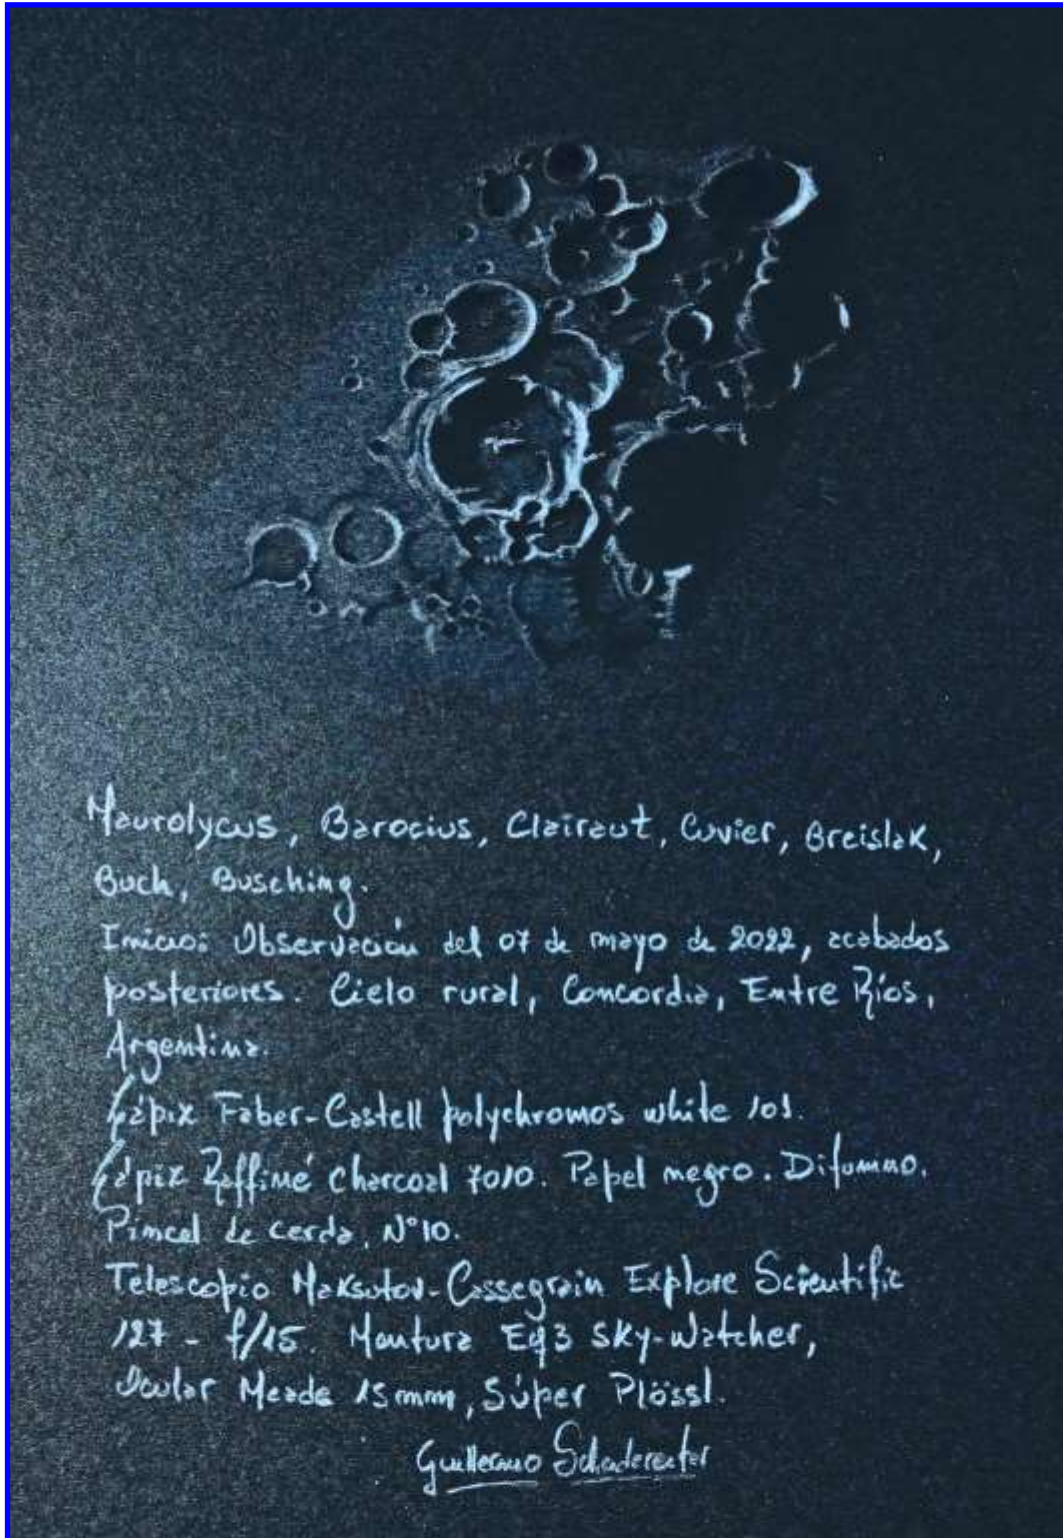 Maurolycus, Barocius, Clairaut, Cuvier, Breislak,
Buch, Busching.
Inicio: Observación del 07 de mayo de 2022, acabados
posteriores. Cielo rural, Concordia, Entre Ríos,
Argentina.
Lápiz Faber-Castell polychromos white 101.
Lápiz Raffiné charcoal 7010. Papel negro. Difumino.
Pincel de cerda, N°10.
Telescopio Maksutov-Cassegrain Explore Scientific
127 - f/15. Montura Eq3 Sky-Watcher,
Ocular Meade 15 mm, Súper Plössl.
Guillermo